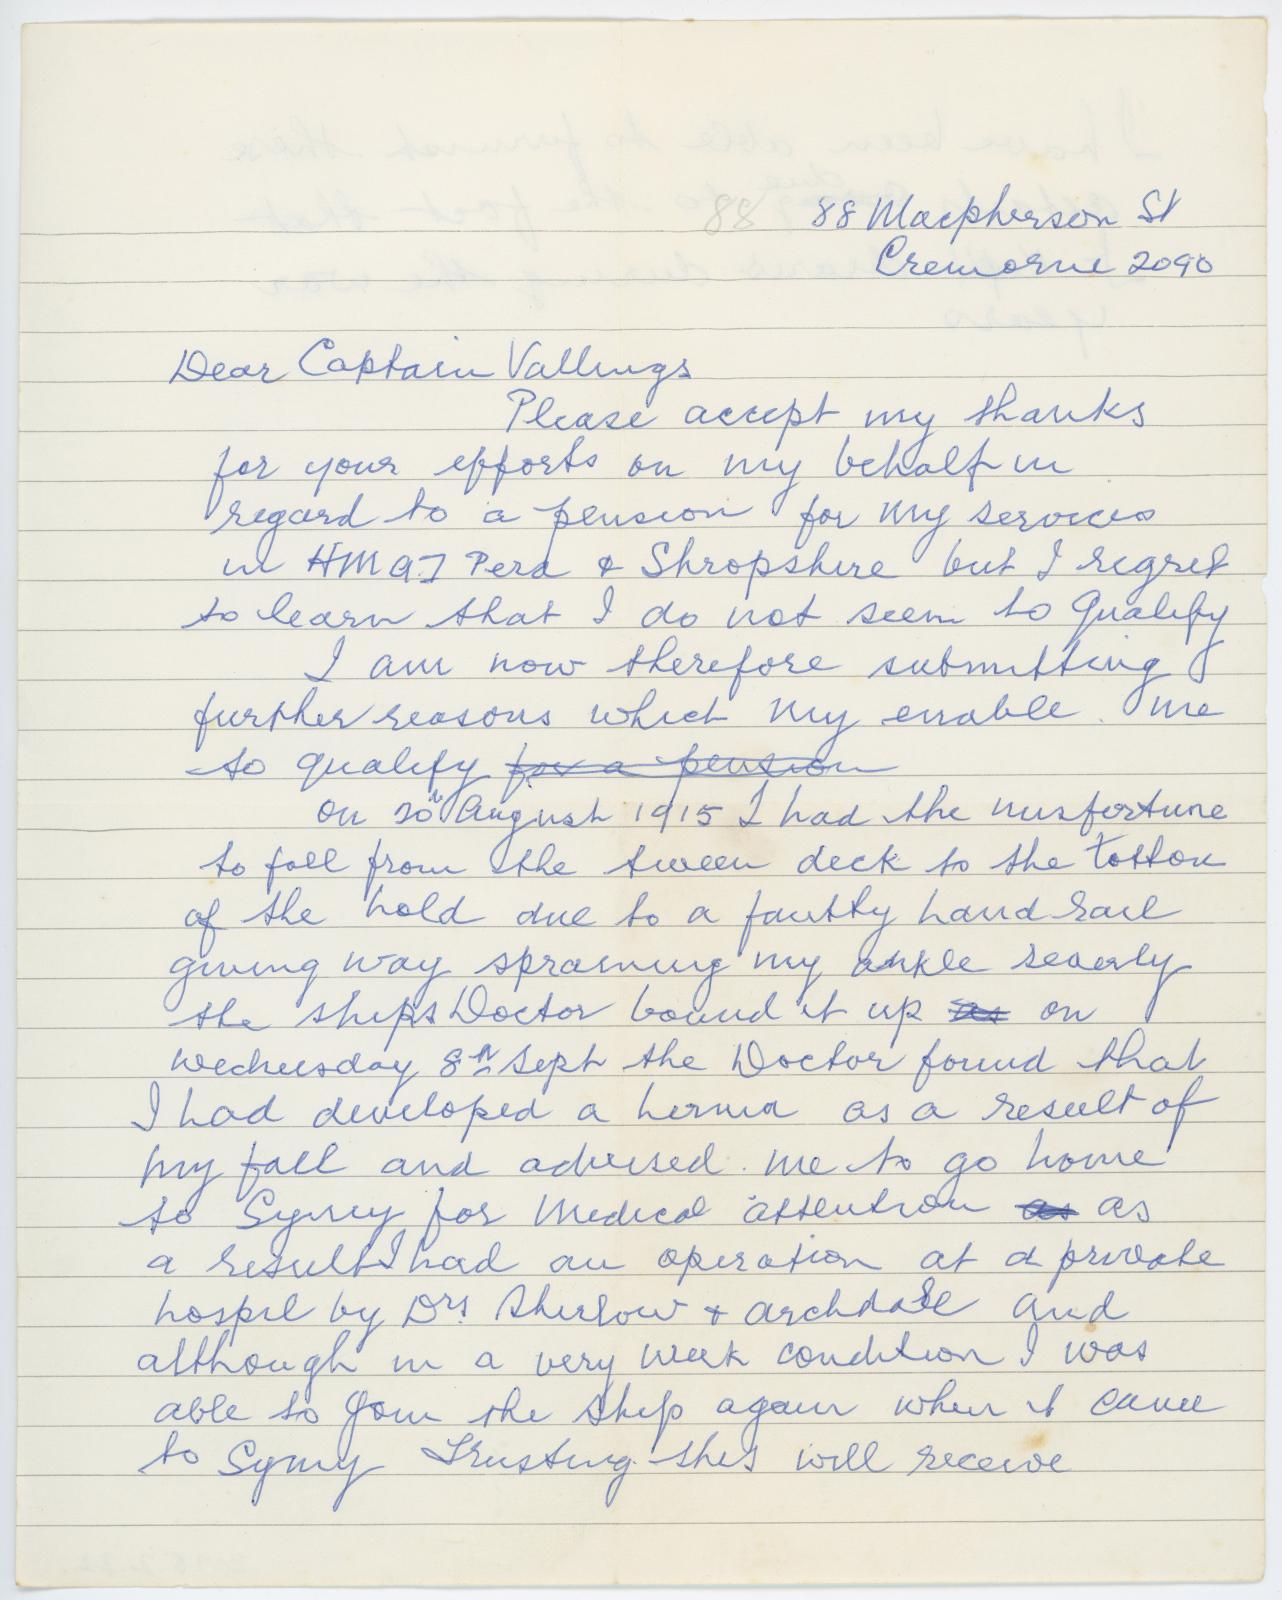 88 Macpherson St
Cremorne 2090
Dear Captain Vallings
Please accept my thanks
for your efforts on my behalf in
regard to a pension for my services
in HMAT Pera & Shropshire but I regret
to learn that I do not seem to qualify
I am now therefore submitting
further reasons which my enable me
to qualify for a pension
On 20th August 1915 I had the misfortune
to fall from the tween deck to the bottom
of the hold due to a faulty hand rail
giving way spraining my ankle severly
the ships Doctor bound it up as on
Wednesday 8th Sept the Doctor found that
I had developed a hernia as a result of
my fall and advised me to go home
to Syney for Medical attention as as
a result I had an operation at a private
hospil by Drs Sherlow + Archdale and
although in a very week condition I was
able to Join the ship again when it came
to Syny Trusting this will receive